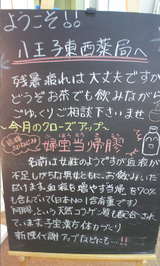 ようこそ!!
八王子東西薬局へ
残暑疲れは大丈夫ですか
どうぞお茶でも飲みながら
ごゆっくりご相談下さいませ
〜今月のクローズアップ〜
婦宝当帰膠
名前は女性のようですが血液が
不足しがちな男女ともに、お飲みいた
だけます。血液を増やす当帰を70%
も含んでいて(日本No.1含有量です)
阿膠という天然コラーゲン
新陳代謝アップなどにも…!!